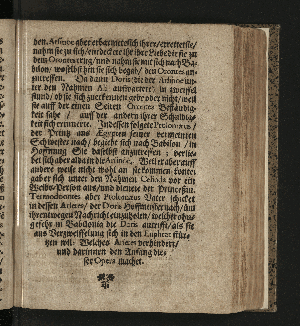 den. Arsinoe aber erbarmete sich ihrer/ errettete/
nahm sie zu sich/ entdeckete ihr ihre Liebe die sie zu
dem Orontes trug/ und nahm sie mit sich nach Ba-
bilon/ woselbst hin sie sich begab/ den Orontes an-
zutreffen. Da dann Doris/ die der Arsinoe un-
ter den Nahmen auffwartete/ in zweifel
stund/ ob sie sich zu erkennen gebe oder nicht/ weil
sie auff der einen Seiten Orontes Beständig-
keit sahe/ auff der andern ihrer Schuldig-
keit sich erinnerte. Indessen folgete Ptolomæus/
der Printz aus Egypten seiner vermeinten
Schwester nach/ begiebt sich nach Babilon/ in
Hoffnung Sie daselbst anzutreffen/ verlie-
bet sich aber alda in die Arsinoe. Weil er aber auff
andere weise nicht wohl an sie kommen konte/
gaber sich unter den Nahmen Celinda vor ein
Weibs-Person aus/ und dienete der Princeßin.
Termodontes aber Ptolomæus Vater schicket
in dessen Arietes/ der Doris Hoffmeister nach/ umb
ihrentwegen Nachricht einzuholen/ welcher ohn-
gefehr in Babilonia die Doris antrifft/ als sie
aus Verzweiffelung sich in den Euphrat stür-
tzen will. Welches Arietes verhindert/
und darinnen den Anfang die-
ser Opera machet.